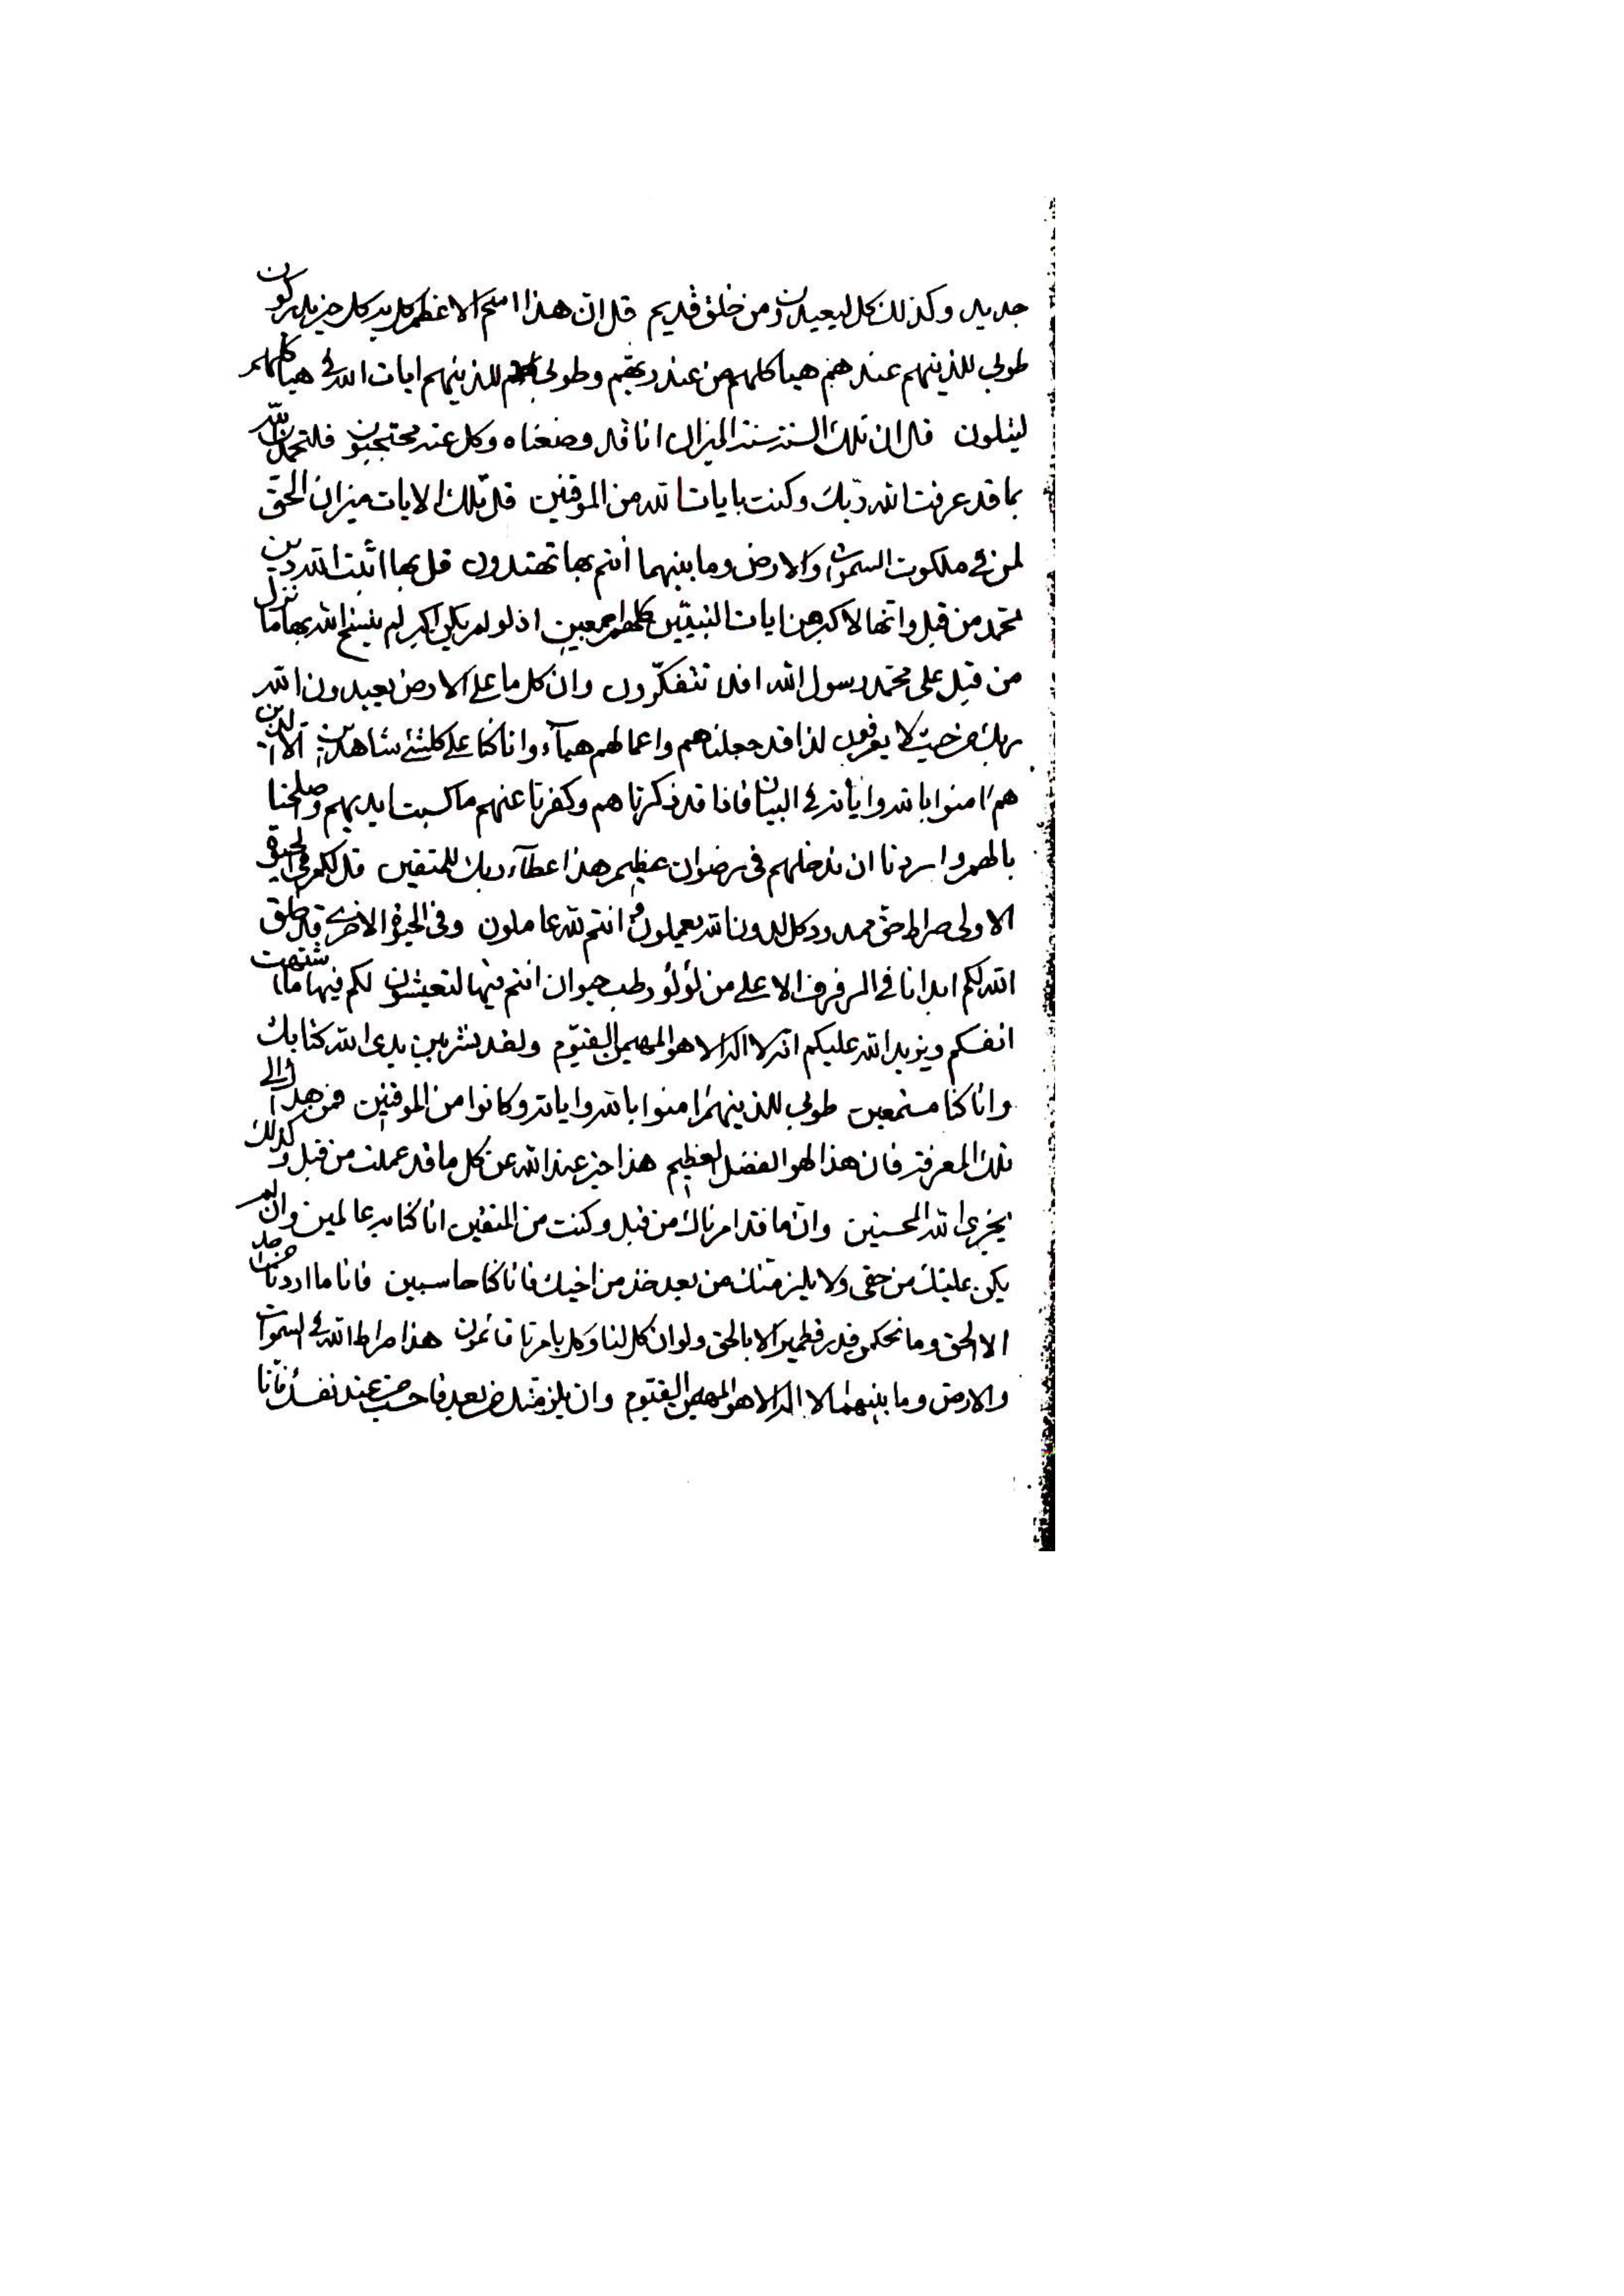 جديد وكذلك كل ليعيدن من خلق قديم قل ان هذا اسم الاعظم كل به كل خير يدركون
طوبى للذينهم عندهم هياكلهم من عند ربهم وطوبى للذينهم ايات الله في هياكلهم
ليتلون قل ان تلك السنة سنة الميزان انا قد وضعناه وكل عنه محتجبون فلتحمدن الله
بما قد عرفت الله ربك وكنت بايات الله من الموقنين قل تلك الايات ميزان الحق
لمن في ملكوت السموات والارض وما بينهما أنتم بها تهتدون قل بها اثبت الله دين
محمد من قبل وانها لاكبر من ايات النبيين كلهم اجمعين اذ لو لم يكن اكبر لم ينسخ الله بها ما نزل
من قبل على محمد رسول الله افلا تتفكرون وان كل ما على الارض يعبدون الله
ربك من حيث لا يعرفون لذا قد جعلناهم واعمالهم هباء وانا كنا على كلشئ شاهدين الا الذين
هم امنوا بالله واياته في البيان فانا قد ذكرناهم وكفرنا عنهم ما كسبت ايديهم وصلحنا
بالهم واردنا ان ندخلهم في رضوان عظيم هذا عطاء ربك للمتقين قل لكم في الحيوة
الاولى صراط حق ممدود كل لدون الله يعملون وانتم لله عاملون وفي الحيوة الاخرى قد خلق
الله لكم ابدانا في الرفرف الاعلى من لؤلؤ رطب حيوان انتم فيها لتعيشون لكم فيها ما اشتهت
انفسكم ويزيد الله عليكم انه لا اله الا هو المهيمن القيوم ولقد نشر بين يدى الله كتابك
وانا كنا مستمعين طوبى للذينهم امنوا بالله واياته وكانوا من الموقنين فمن هدا الى
تلك المعرفة فان هذا لهو الفضل العظيم هذا خير عند الله عن كل ما قد عملت من قبل وكذلك
يجزى الله المحسنين وان ما قد امرناك من قبل وكنت من المتقين انا كنا به عالمين وان لم
يكن عليك من حقى ولا يلزمنك من بعد خذ من اخيك فانا كنا حاسبين فانا ما اردنا من احد
الا الحق وما نحكمن قدر قطمير الا بالحق ولو ان كل لنا وكل بامرنا قائمون هذا صراط الله في السموات
والارض وما بينهما لا اله الا هو المهيمن القيوم وان يلزمنك من بعد فاحسب عند نفسك فانا